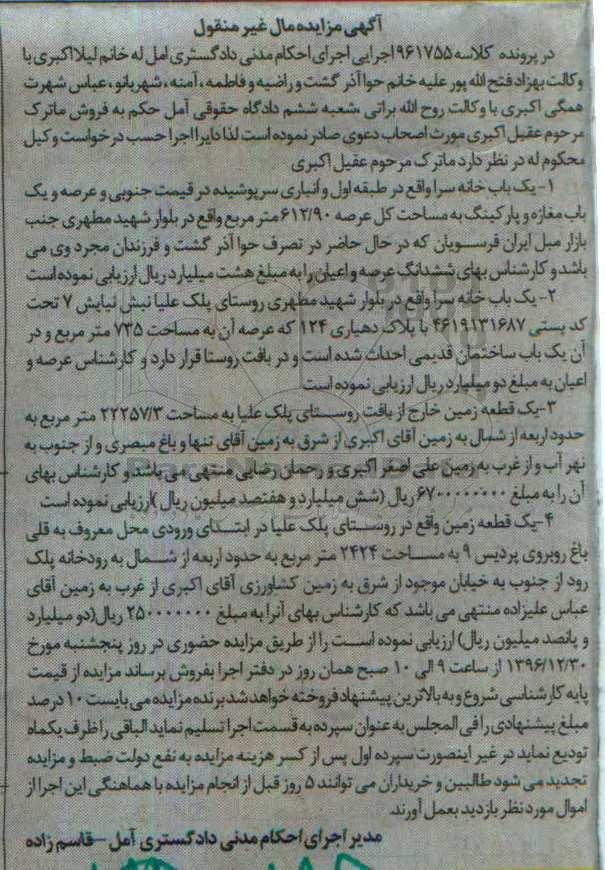 آگهی مزایده مال غیر منقول
در پرونده کلاسه ۹۶۱۷۵۵ اجرایی اجرای احکام مدنی دادگستری امل له خانم لیلا اکبری با
وکالت بهزاد فتح الله پور علیه خانم حوا آذر گشت و راضیه و فاطمه ، آمنه ، شهربانو ، عباس شهرت
همگی اکبری با وکالت روح الله براتی ،شعبه ششم دادگاه حقوقی آمل حکم به فروش ماترک
مرحوم عقیل اکبری مورث اصحاب دعوی صادر نموده است لذا دایرا اجرا حسب درخواست وکیل
محکوم له در نظر دارد ماترک مرحوم عقیل اکبری
۱- یک باب خانه سرا واقع در طبقه اول و انباری سرپوشیده در قیمت جنوبی و عرصه و یک
باب مغازه و پارکینگ به مساحت کل عرصه ۶۱۲/۹۰ متر مربع واقع در بلوار شهید مطهری جنب
بازار مبل ایران فرسویان که در حال حاضر در تصرف حوا آذر گشت و فرزندان مجرد وی می
باشد و کارشناس بهای ششدانگ عرصه و اعیان را به مبلغ هشت میلیارد ریال ارزیابی نموده است
۲- یک باب خانه سرا واقع در بلوار شهید مطهری روستای پلک علیا نبش نیایش ۷ تحت
کد پستی ۴۶۱۹۱۳۱۶۸۷ با پلاک دهیاری ۱۲۴ که عرصه آن به مساحت ۷۳۵ متر مربع و در
آن یک باب ساختمان قدیمی احداث شده است و در بافت روستا قرار دارد و کارشناس عرصه و
اعیان به مبلغ دو میلیارد ریال ارزیابی نموده است
۳-یک قطعه زمین خارج از بافت روستای پلک علیا به مساحت ۲۲۲۵۷/۳ متر مربع به
حدود اربعه از شمال به زمین آقای اکبری از شرق به زمین آقای تنها و باغ مبصری و از جنوب به
نهر آب و از غرب به زمین علی اصغر اکبری و رحمان رضایی منتهی می باشد و کارشناس بهای
آن را به مبلغ ۶۷۰۰۰۰۰۰۰۰ ریال (شش میلیارد و هفتصد میلیون ریال )ارزیابی نموده است
۴-یک قطعه زمین واقع در روستای پلک علیا در ابتدای ورودی محل معروف به قلی
باغ روبروی پردیس ۹ به مساحت ۲۴۲۴ متر مربع به حدود اربعه از شمال به رودخانه پلک
رود از جنوب به خیابان موجود از شرق به زمین کشاورزی آقای اکبری از غرب به زمین آقای
عباس علیزاده منتهی می باشد که کارشناس بهای آنرا به مبلغ ۲۵۰۰۰۰۰۰۰۰ ریال(دو میلیارد
و پانصد میلیون ریال) ارزیابی نموده است را از طریق مزایده حضوری در روز پنجشنبه مورخ
۱۳۹۶/۱۲/۳۰ از ساعت ۹ الی ۱۰ صبح همان روز در دفتر اجرا بفروش برساند مزایده از قیمت
پایه کارشناسی شروع و به بالاترین پیشنهاد فروخته خواهد شد برنده مزایده می بایست ۱۰ درصد
مبلغ پیشنهادی را فی المجلس به عنوان سپرده به قسمت اجرا تسلیم نماید الباقی را ظرف یکماه
تودیع نماید در غیر اینصورت سپرده اول پس از کسر هزینه مزایده به نفع دولت ضبط و مزایده
تجدید می شود طالبین و خریداران می توانند ۵ روز قبل از انجام مزایده با هماهنگی این اجرا از
اموال مورد نظر بازدید بعمل آورند.
مدیر اجرای احکام مدنی دادگستری آمل –قاسم زاده